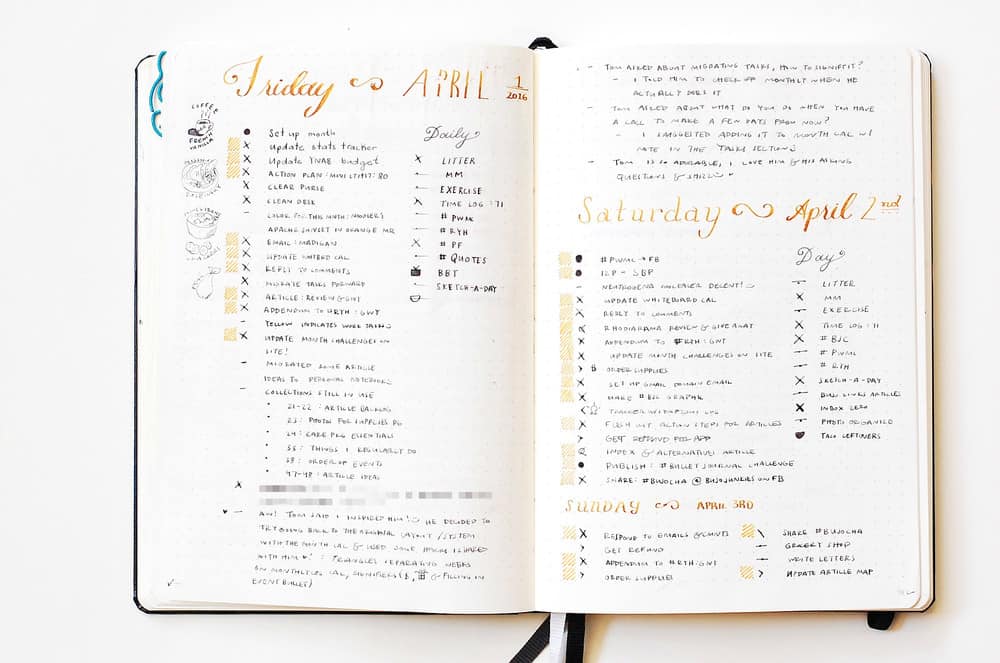 Friday APRIL 1 2016
COFFEE
FRENCH VANILLA
Set up month
Update stats tracker
Update YNAB budget
ACTION PLAN: MINI
CLEAR PURSE
CLEAN DESK
COLOR FOR THIS MONTH:
APACHE SUNSET IN ORANGE MR
EMAIL: MADIGAN
UPDATE WHTBRD CAL
REPLY TO COMMENTS
MIGRATE TASKS FORWARD
ARTICLE: REVIEW & GVWY
ADDENDUM TO #RTH: GWY
YELLOW INDICATES WORK TASKS
UPDATE MONTH CHALLENGES ON
SITE!
MIGRATED SOME ARTICLE
IDEAS TO PERSONAL NOTEBOOK
COLLECTIONS STILL IN USE
21-22: ARTICLE BACKLOG
23: PHOTOS FOR SUPPLIES PG
24: CARE PKG ESSENTIALS
55: THINGS I REGULARLY DO
58: ORDER OF EVENTS
47-48: ARTICLE IDEAS
AW! TOM SAID I INSPIRED HIM! HE DECIDED TO
TRY GOING BACK TO THE ORIGINAL LAYOUT/SYSTEM
WITH THE MONTH CAL & USED SOME I SHARED
WITH HIM! : TRIANGLES SEPARATING WEEKS
ON MONTHLY CAL, SIGNIFIERS (& FILLING IN
EVENT BULLET)
Daily
LITTER
MM
EXERCISE
TIME LOG: 71
# PWML
# RYH
# PF
# QUOTES
BBT
SKETCH-A-DAY
TOM ASKED ABOUT MIGRATING TASKS, HOW TO SIGNIFY IT?
I TOLD HIM TO CHECK UP MONTHLY WHEN HE
ACTUALLY DOES IT
TOM ASKED ABOUT WHAT DO YOU DO WHEN YOU HAVE
A CALL TO MAKE A FEW DAYS FROM NOW?
I SUGGESTED ADDING IT TO MONTH CAL W/
NOTE IN THE TASKS SECTION
TOM IS SO ADORABLE, I LOVE HIM & HIS ASKING
QUESTIONS &
Saturday April 2nd
#PWML → FB
12P - SBP
NEUTROGENA
UPDATE WHITEBOARD CAL
REPLY TO COMMENTS
RHODIARAMA REVIEW & GIVEAWAY
ADDENDUM TO #RTH: GWY
UPDATE MONTH CHALLENGES ON SITE
ORDER SUPPLIES
SET UP GMAIL DOMAIN EMAIL
MAKE #BJC GRAPHIC
TRACKER LOG
FLESH OUT ACTION STEPS FOR ARTICLES
GET REFUND FOR APP
INDEX & ALTERNATIVES ARTICLE
PUBLISH: #BULLET JOURNAL CHALLENGE
SHARE: #BUJOCHA @ BUJOJUNKIES ON FB
Day
LITTER
MM
EXERCISE
TIME LOG: 71
# BJC
# PWML
# RTH
SKETCH-A-DAY
BUJO LINKS ARTICLES
INBOX ZERO
PHOTO ORGANIZED
TACO LEFTOVERS
SUNDAY APRIL 3RD
RESPOND TO EMAILS & CMNTS
GET REFUND
ADDENDUM TO #RTH: GWY
ORDER SUPPLIES
SHARE #BUJOCHA
GROCERY SHOP
WRITE LETTERS
UPDATE ARTICLE MAP